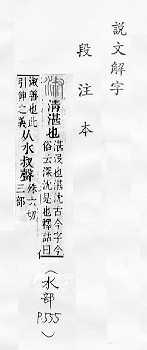 說文解字
段注本
淑
清湛也湛沒也湛沈古今字今
俗云深沈是也釋詁曰
淑善也此
引伸之義从水叔聲殊六切
三部
(水部
P.555)